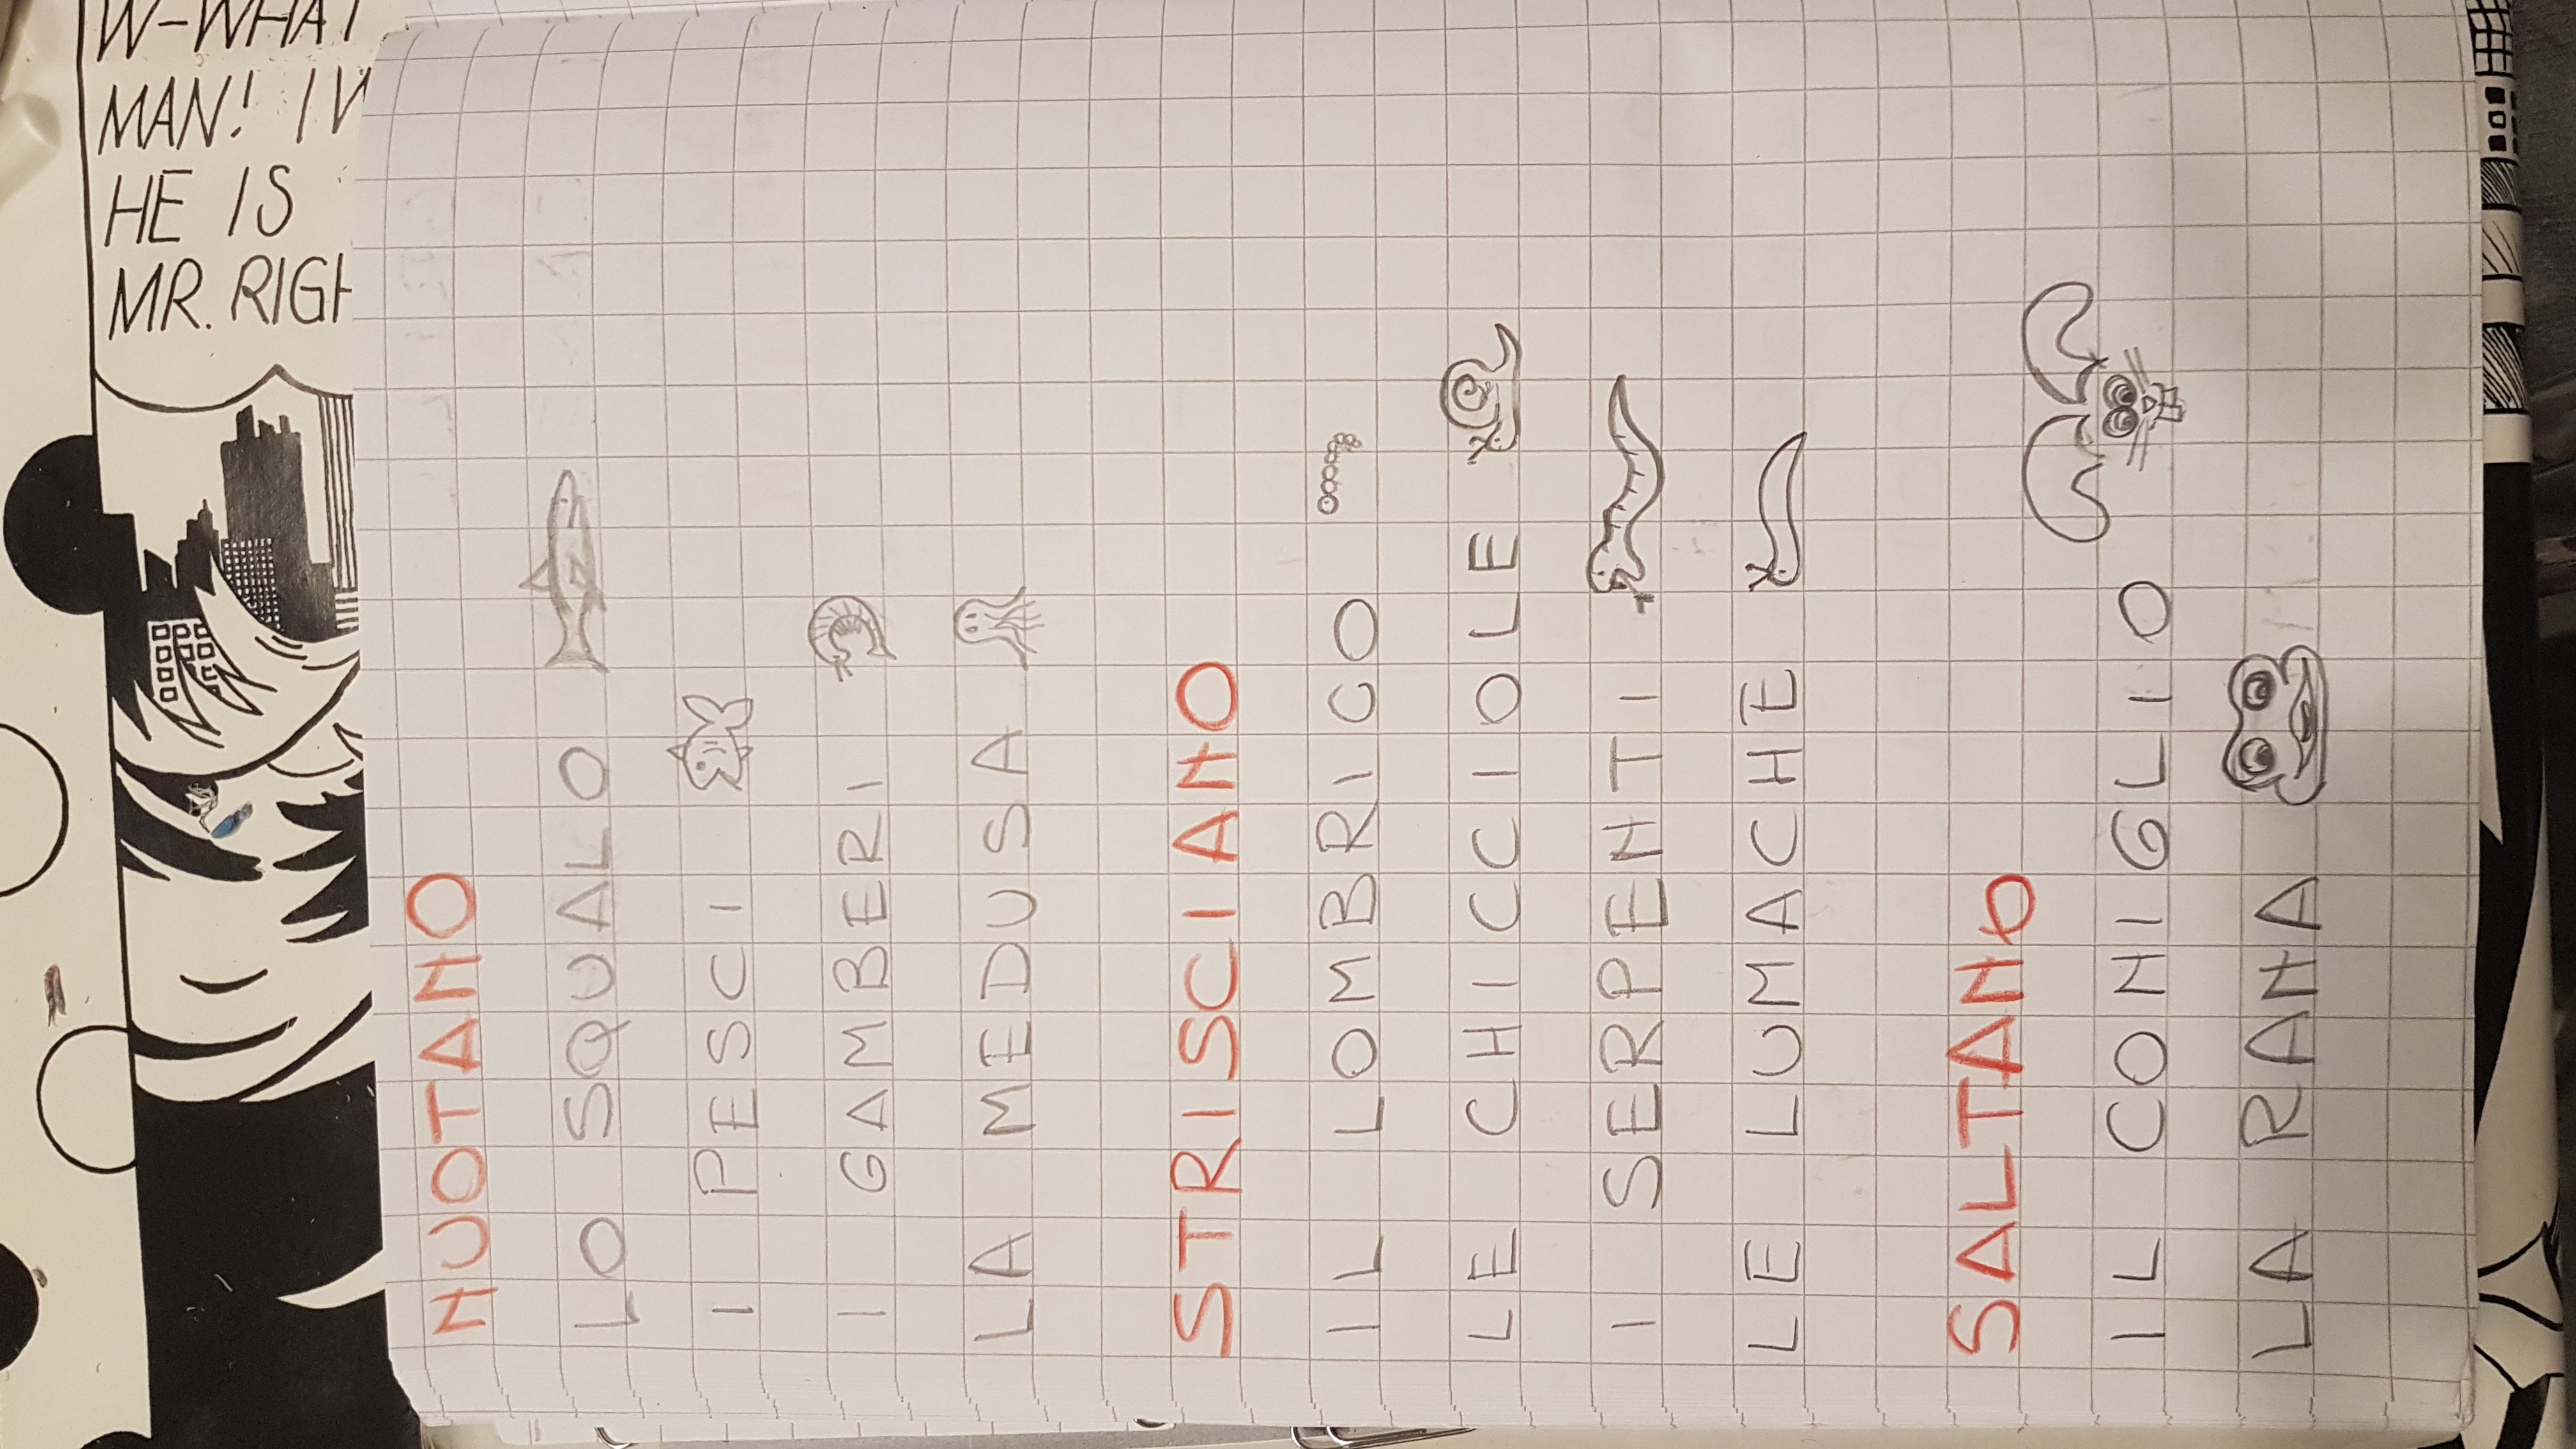 W-WHAT
MAN! I'V
HE IS
MR. RIGH
NUOTANO
LO SQUALO
I PESCI
I GAMBERI
LA MEDUSA
STRISCIANO
IL LOMBRICO
LE CHICCIOLE
I SERPENTI
LE LUMACHE
SALTANO
IL CONIGLIO
LA RANA